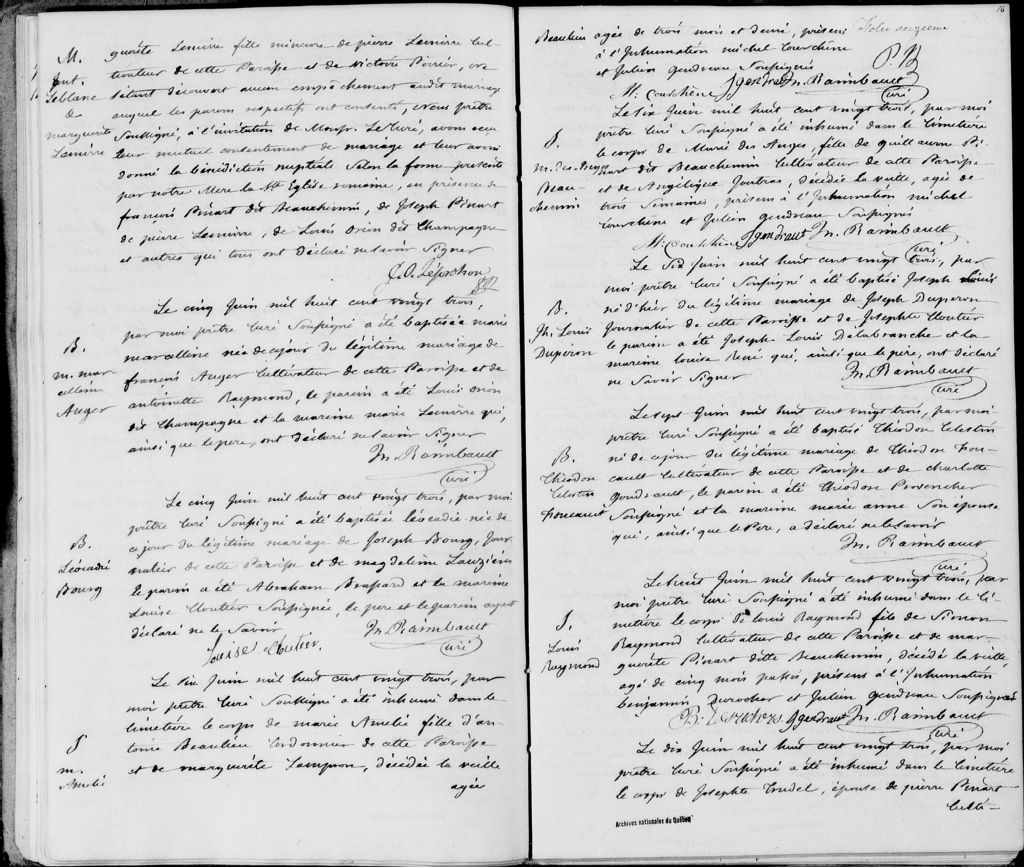 M. guérite Lemirre fille mineure de pierre Lemirre Cul-
Ant. tivateur de cette Paroisse et de Victoire Poirier, ne
Leblanc s'étant découvert aucun empêchement audit mariage
& auquel les parens respectifs ont consenti, Nous prêtre
marguerite Soussigné, à l'invitation de Monsr. Le Curé, avons reçu
Lemirre leur mutuel consentement de mariage et leur avons
donné la bénédiction nuptiale selon la forme prescrite
par notre Mère la Ste Eglise romaine, en présence de
françois Pinart dit Beauchemin, de Joseph Pinart
de pierre Lemirre, de Louis Orion dit Champagne
et autres qui tous ont déclaré ne savoir signer
Le cinq Juin mil huit cent vingt trois,
par moi prêtre Curé Soussigné a été baptisée marie
B. marcelline née de ce jour du légitime mariage de
m. mar françois Auger Cultivateur de cette Paroisse et de
celline antoinette Raymond, le parein a été Louis Orion
Auger dit Champagne et la mareine marie Lemirre qui,
ainsi que le pere, ont déclaré ne savoir signer
Jn. Raimbault
Curé
Le cinq Juin mil huit cent vingt trois, par moi
prêtre Curé Soussigné a été baptisée Léocadie née de
B. ce jour du légitime mariage de Joseph Bourg, Jour-
Léocadie nalier de cette Paroisse et de magdeleine Lauzière
Bourg le parein a été Abraham Brassard et la mareine
Louise Cloutier Soussignée, le pere et le parein ayant
déclaré ne le savoir Jn. Raimbault
Louise Cloutier. Curé
Le six Juin mil huit cent vingt trois, par
moi prêtre Curé Soussigné a été inhumé dans le
Cimetière le corps de marie Amélie fille d'an-
S toine Beaulieu Cordonnier de cette Paroisse
m. et de marguerite Lampron, décédée la veille
Amélie agée
16
Folio seizieme
Beaulieu agée de trois mois et demi, présens
à l'Inhumation michel Courchène P. B
et Julien gendreau Soussignés
M. Courchène J gendraut Jn. Raimbault
Curé
Le six Juin mil huit cent vingt trois, par moi
prêtre Curé Soussigné a été inhumé dans le Cimetière
S. le corps de Marie des Anges, fille de guillaume Pi-
m. des Anges nart dit Beauchemin Cultivateur de cette Paroisse
Beau et de Angélique Joutras, décédée la veille, agée de
chemin trois Semaines, présens à l'Inhumation michel
Courchène et Julien gendreau Soussignés
M. Courchène J gendraut Jn. Raimbault
Curé
Le Six Juin mil huit cent vingt trois, par
moi prêtre Curé Soussigné a été baptisé Joseph Louis
B. né d'hier du légitime mariage de Joseph Duperon
Jh. Louis Journalier de cette Paroisse et de Josephte Cloutier
Duperon le parein a été Joseph Louis Delabranche et la
mareine Louise René qui, ainsi que le pere, ont déclaré
ne Savoir Signer Jn. Raimbault
Curé
Le sept Juin mil huit cent vingt trois, par moi
prêtre Curé Soussigné a été baptisé Théodore Celestin
B. né de ce jour du légitime mariage de Théodore Fou-
Théodore cault Cultivateur de cette Paroisse et de charlotte
Celestin goudreault, le parein a été Théodore Provencher
Foucault Soussigné et la mareine marie anne Son épouse
qui, ainsi que le Pere, a déclaré ne le savoir
Jn. Raimbault
Curé
Le huit Juin mil huit cent vingt trois, par
moi prêtre Curé Soussigné a été inhumé dans le Ci-
metière le corps de Louis Raymond fils de Simon
S. Raymond Cultivateur de cette Paroisse et de mar-
Louis guérite Pinart ditte Beauchemin, décédé la veille,
Raymond agé de cinq mois passés, présens à l'Inhumation
benjamin Durocher et Julien gendreau Soussignés
J gendraut Jn. Raimbault
Curé
Le dix Juin mil huit cent vingt trois, par moi
prêtre Curé Soussigné a été inhumé dans le Cimetière
le corps de Josephte Trudel, épouse de pierre Pinart
Culti-
Archives nationales du Québec